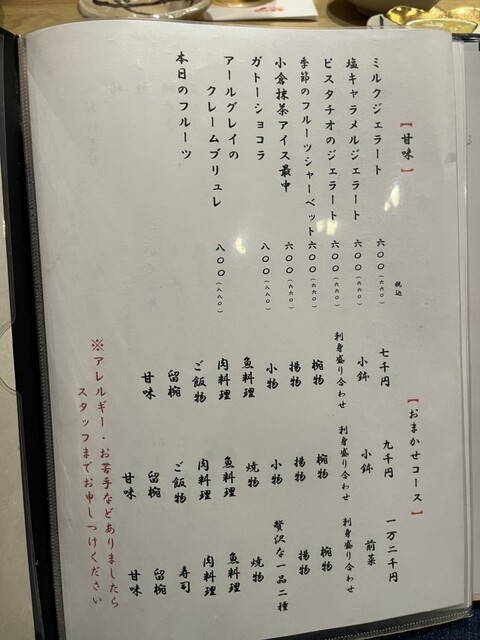 【甘味】
税込
ミルクジェラート 六〇〇(六六〇)
塩キャラメルジェラート 六〇〇(六六〇)
ピスタチオのジェラート 六〇〇(六六〇)
季節のフルーツシャーベット 六〇〇(六六〇)
小倉抹茶アイス最中 六〇〇(六六〇)
ガトーショコラ 八〇〇(八八〇)
アールグレイの
クレームブリュレ 八〇〇(八八〇)
本日のフルーツ
【おまかせコース】
七千円
小鉢
刺身盛り合わせ
椀物
揚物
小物
魚料理
肉料理
ご飯物
留椀
甘味
九千円
小鉢
刺身盛り合わせ
椀物
揚物
小物
焼物
魚料理
肉料理
ご飯物
留椀
甘味
一万二千円
前菜
刺身盛り合わせ
椀物
揚物
贅沢な一品二種
焼物
魚料理
肉料理
寿司
留椀
甘味
※アレルギー・お苦手などありましたら
スタッフまでお申しつけください